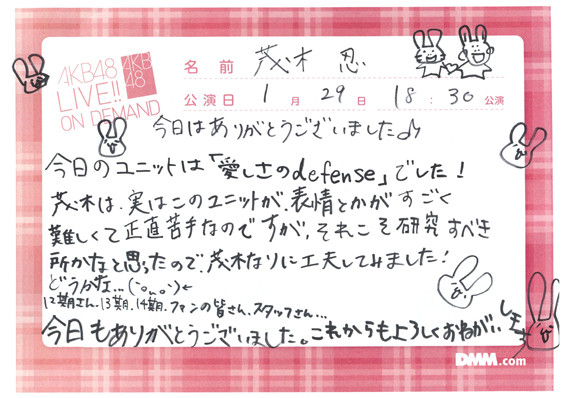 AKB48
LIVE!!
ON DEMAND
AKB
48
名前 茂木 忍
公演日 1月29日 18:30公演
今日はありがとうございました♪
今日のユニットは「愛しさのdefense」でした！
茂木は、実はこのユニットが、表情とかがすごく
難しくて正直苦手なのですが、それこそ研究すべき
所かなと思ったので、茂木なりに工夫してみました！
どうかな…(´･｡｡･`)←
12期さん、13期、14期、ファンの皆さん、スタッフさん…
今日もありがとうございました。これからもよろしくおねがいします
DMM.com